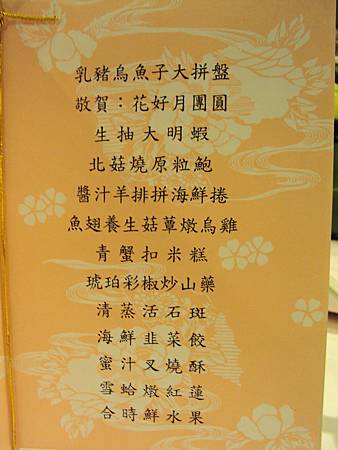 乳豬烏魚子大拼盤
敬賀：花好月團圓
生抽大明蝦
北菇燒原粒鮑
醬汁羊排拼海鮮捲
魚翅養生菇蕈燉烏雞
青蟹扣米糕
琥珀彩椒炒山藥
清蒸活石斑
海鮮韭菜餃
蜜汁叉燒酥
雪蛤燉紅蓮
合時鮮水果